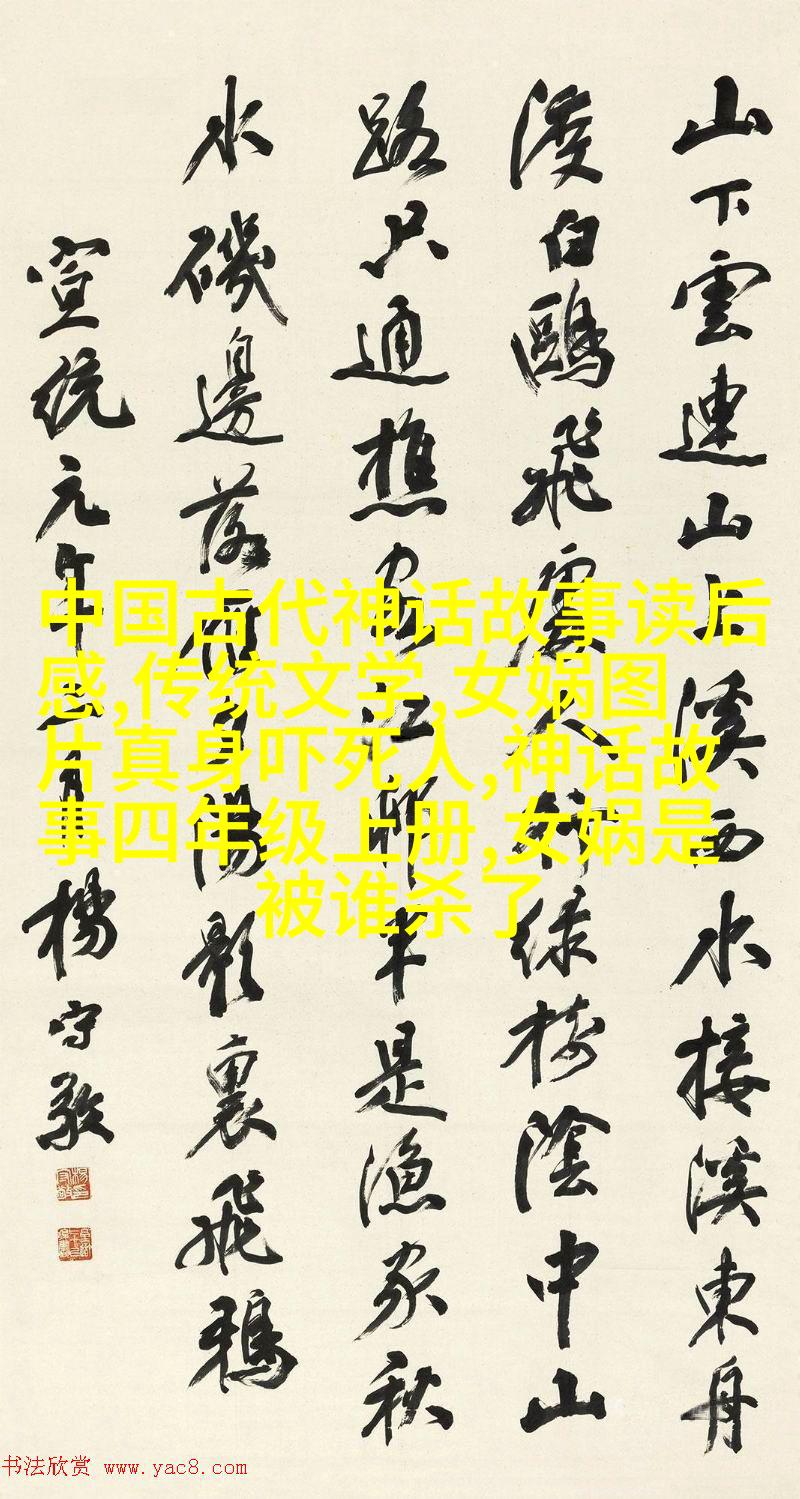 山下雲連山上溪西水接溪東舟
渡白鷗飛處人行綠樹陰中山
路只通樵客江邨半是漁家秋
水磯邊落雁夕陽影裏飛鴉
宣統元年月楊守敬
中国古代神话故事读后
感,传统文学,女娲图
片真身吓死人,神话故
事四年级上册,女娲是
被谁杀了
书法欣赏 www.yac8.com